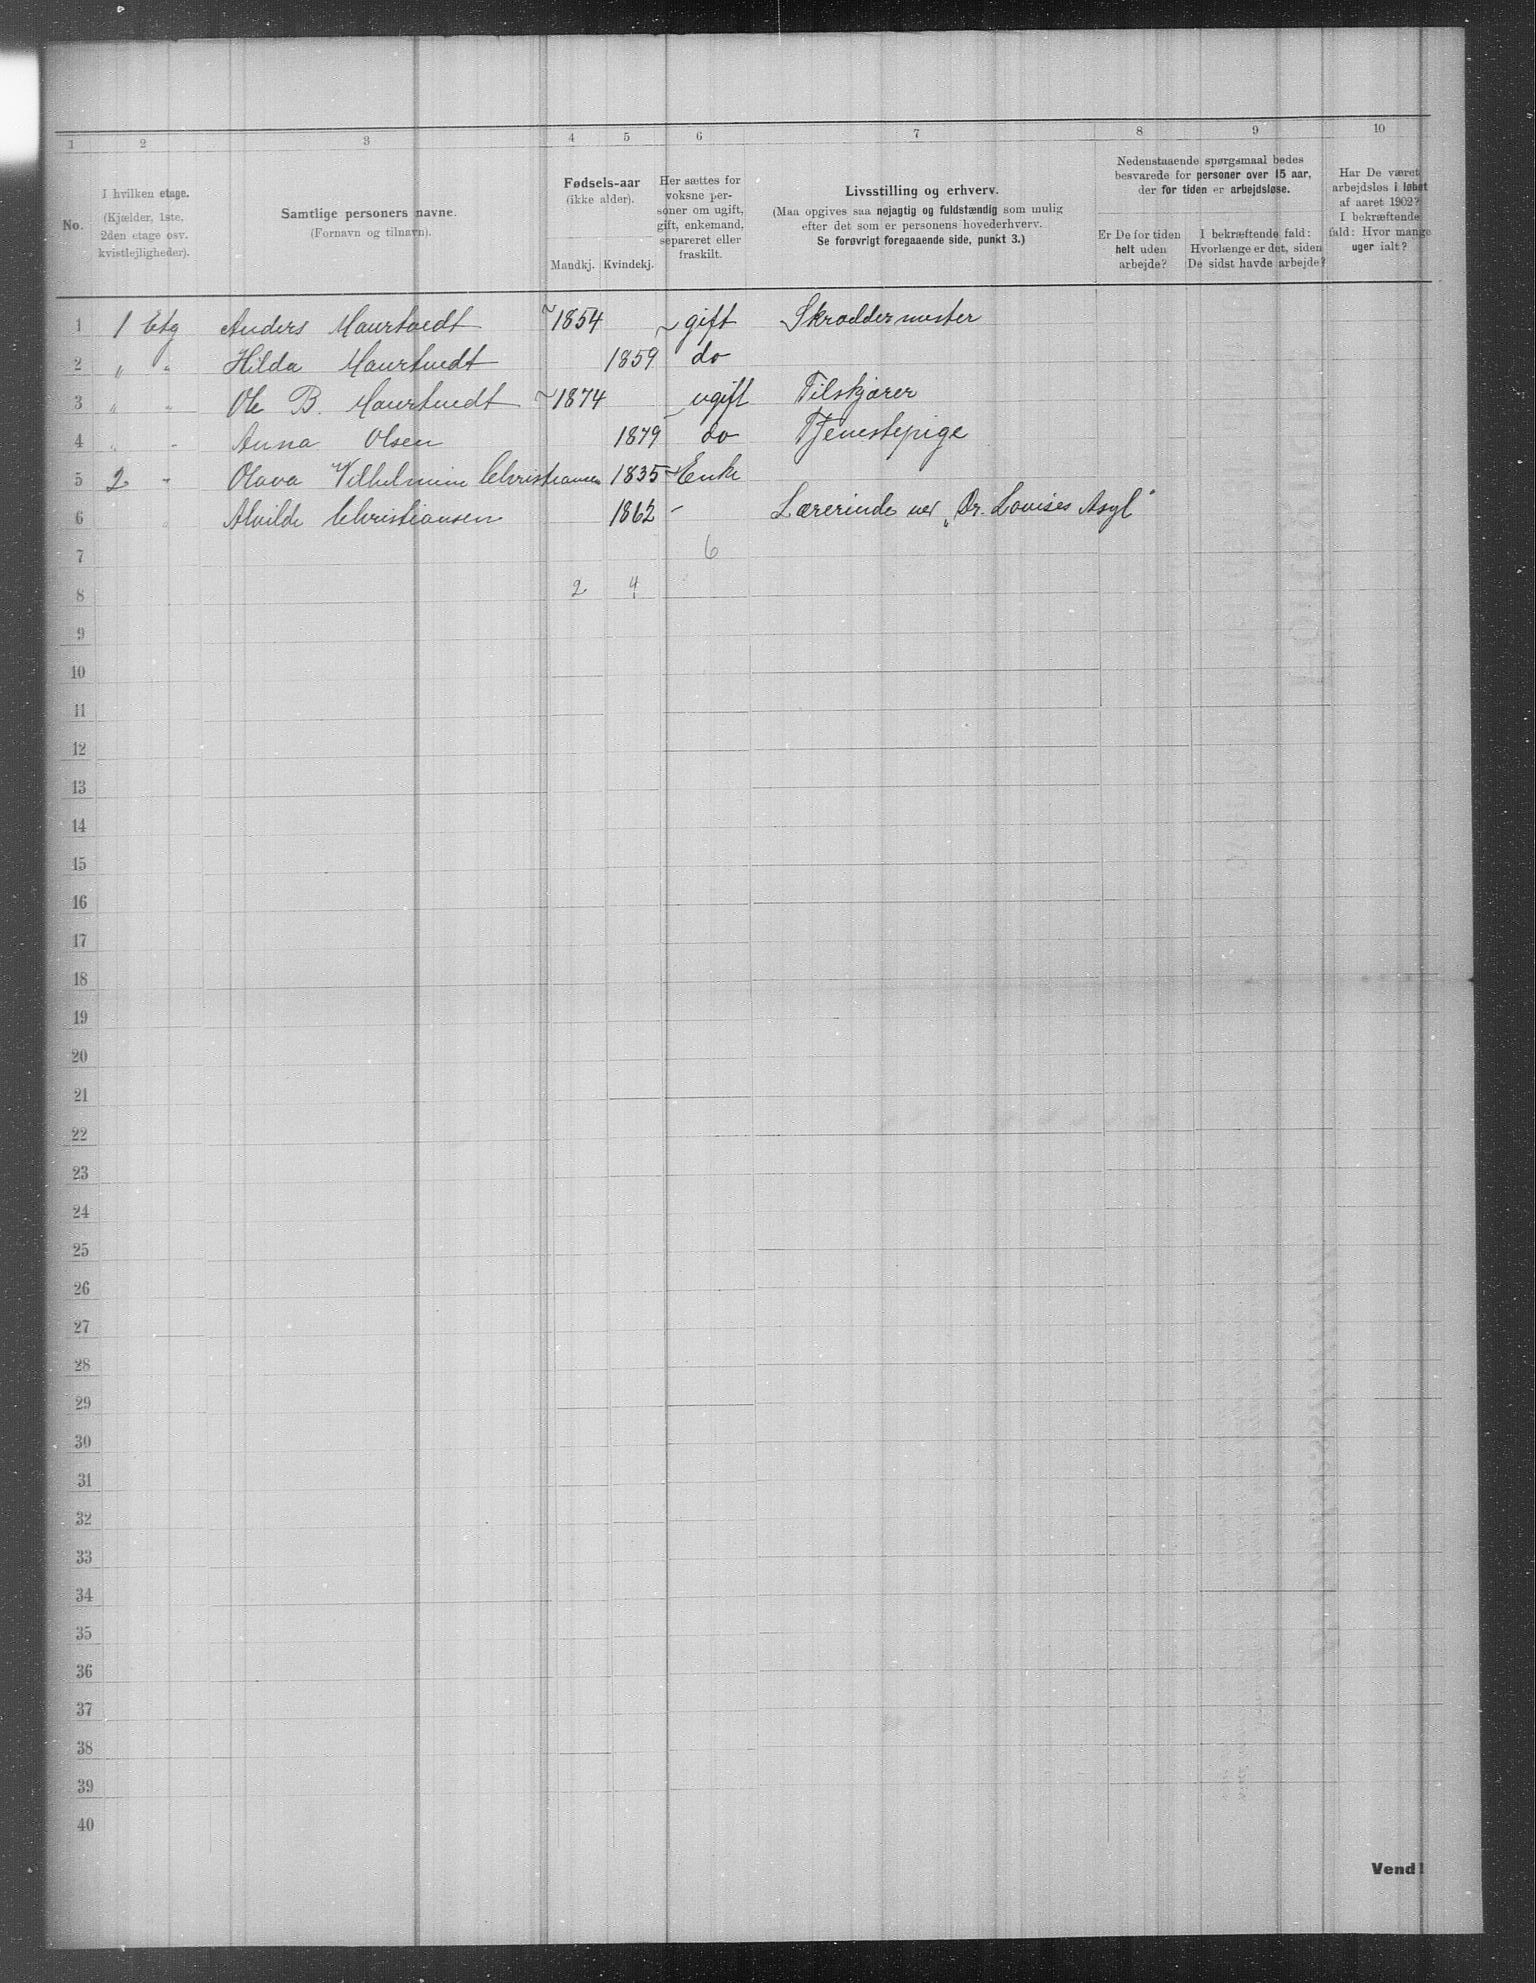 1 2 3 4 5 6 7 8 9 10
No.
I hvilken etage.
(Kjælder, 1ste, 2den etage osv. kvistlejligheder).
Samtlige personers navne.
(Fornavn og tilnavn).
Fødsels-aar
(ikke alder).
Mandkj. Kvindekj.
Her sættes for voksne personer om ugift, gift, enkemand, separeret eller fraskilt.
Livsstilling og erhverv.
(Maa opgives saa nøjagtig og fuldstændig som mulig
efter det som er personens hovederhverv.
Se forøvrigt foregaaende side, punkt 3.)
Nedenstaaende spørgsmaal bedes
besvarede for personer over 15 aar,
der for tiden er arbejdsløse.
Er De for tiden
helt uden
arbejde?
I bekræftende fald:
Hvorlænge er det, siden
De sidst havde arbejde?
Har De været
arbejdsløs i løbet
af aaret 1902?
I bekræftende
fald: Hvor mange
uger ialt?
1 1 Etg Anders Maurtvedt 1854 gift Skræddermester
2 " " Hilda Maurtvedt 1859 do
3 " " Ole B. Maurtvedt 1874 ugift Tilskjærer
4 " " Anna Olsen 1879 do Tjenestepige
5 2 " Olava Vilhelmine Christiansen 1835 Enke
6 Alvilde Christiansen 1862 - Lærerinde ved "Dr. Louises Asyl"
7 6
8 2 4
9
10
11
12
13
14
15
16
17
18
19
20
21
22
23
24
25
26
27
28
29
30
31
32
33
34
35
36
37
38
39
40
Vend!